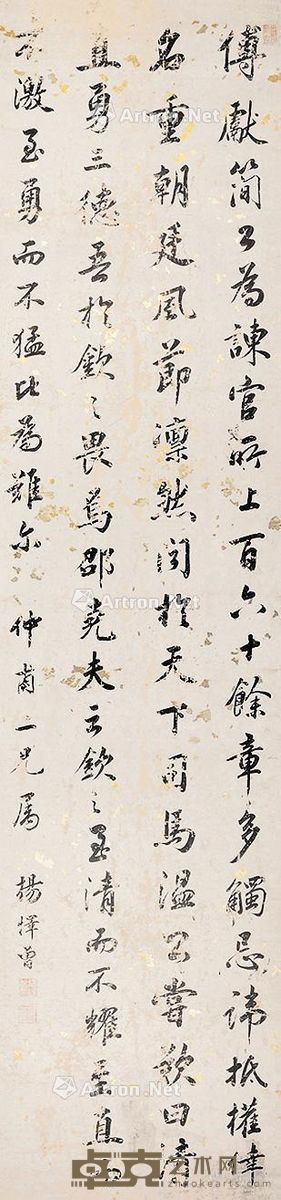 傅獻簡公為諫官所上百六十餘章多觸忌諱抵權倖
名重朝廷風節凜然聞於天下司馬溫公嘗歎曰清
直且勇三德吾於欽之畏焉邵堯夫云欽之至清而不耀至直而
不激至勇而不猛此為難尔 仲蘭二兄屬 楊懌曾
Artron.Net
卓克艺术网
zhuokearts.com